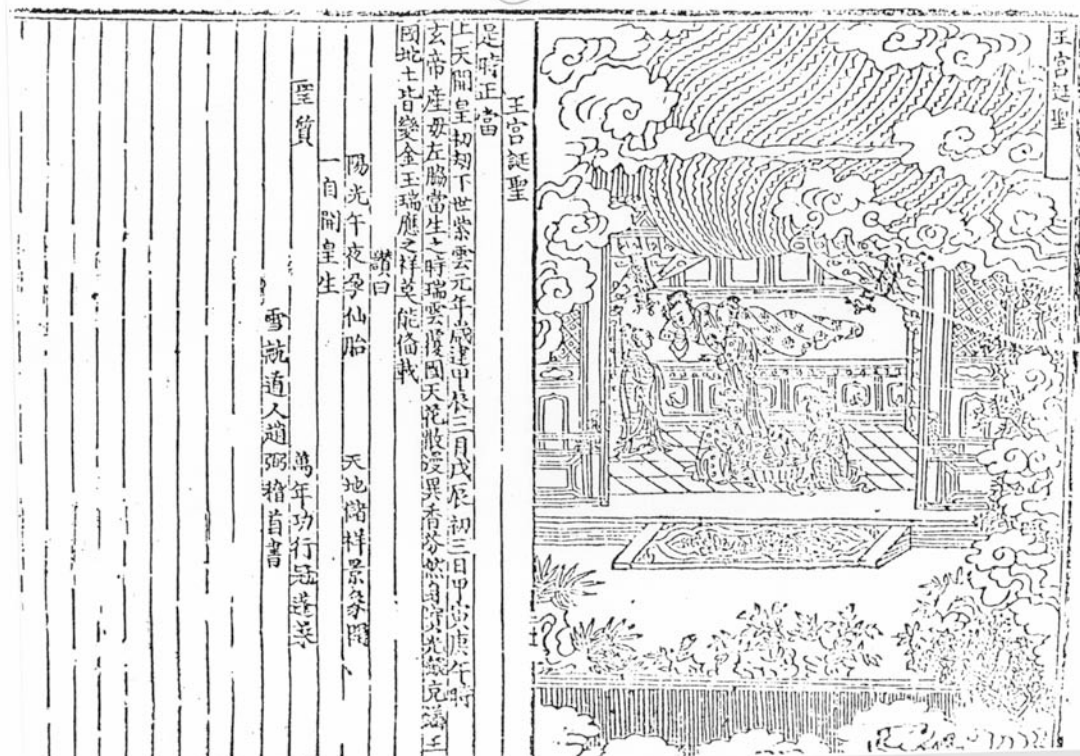 王宮誕聖
王宮誕聖
是時正當
上天開皇初刼下世紫雲元年歲建甲辰三月戊辰初三日甲寅庚午時
玄帝産母左脇當生之時瑞雲覆國天花散漫異香芬然身寳光燄充滿王
國地土皆變金玉瑞應之祥莫能備載
讚曰
陽光午夜孕仙胎 天地儲祥景象開
一自開皇生
聖質 萬年功行冠蓬萊
雪航道人趙弼稽首書